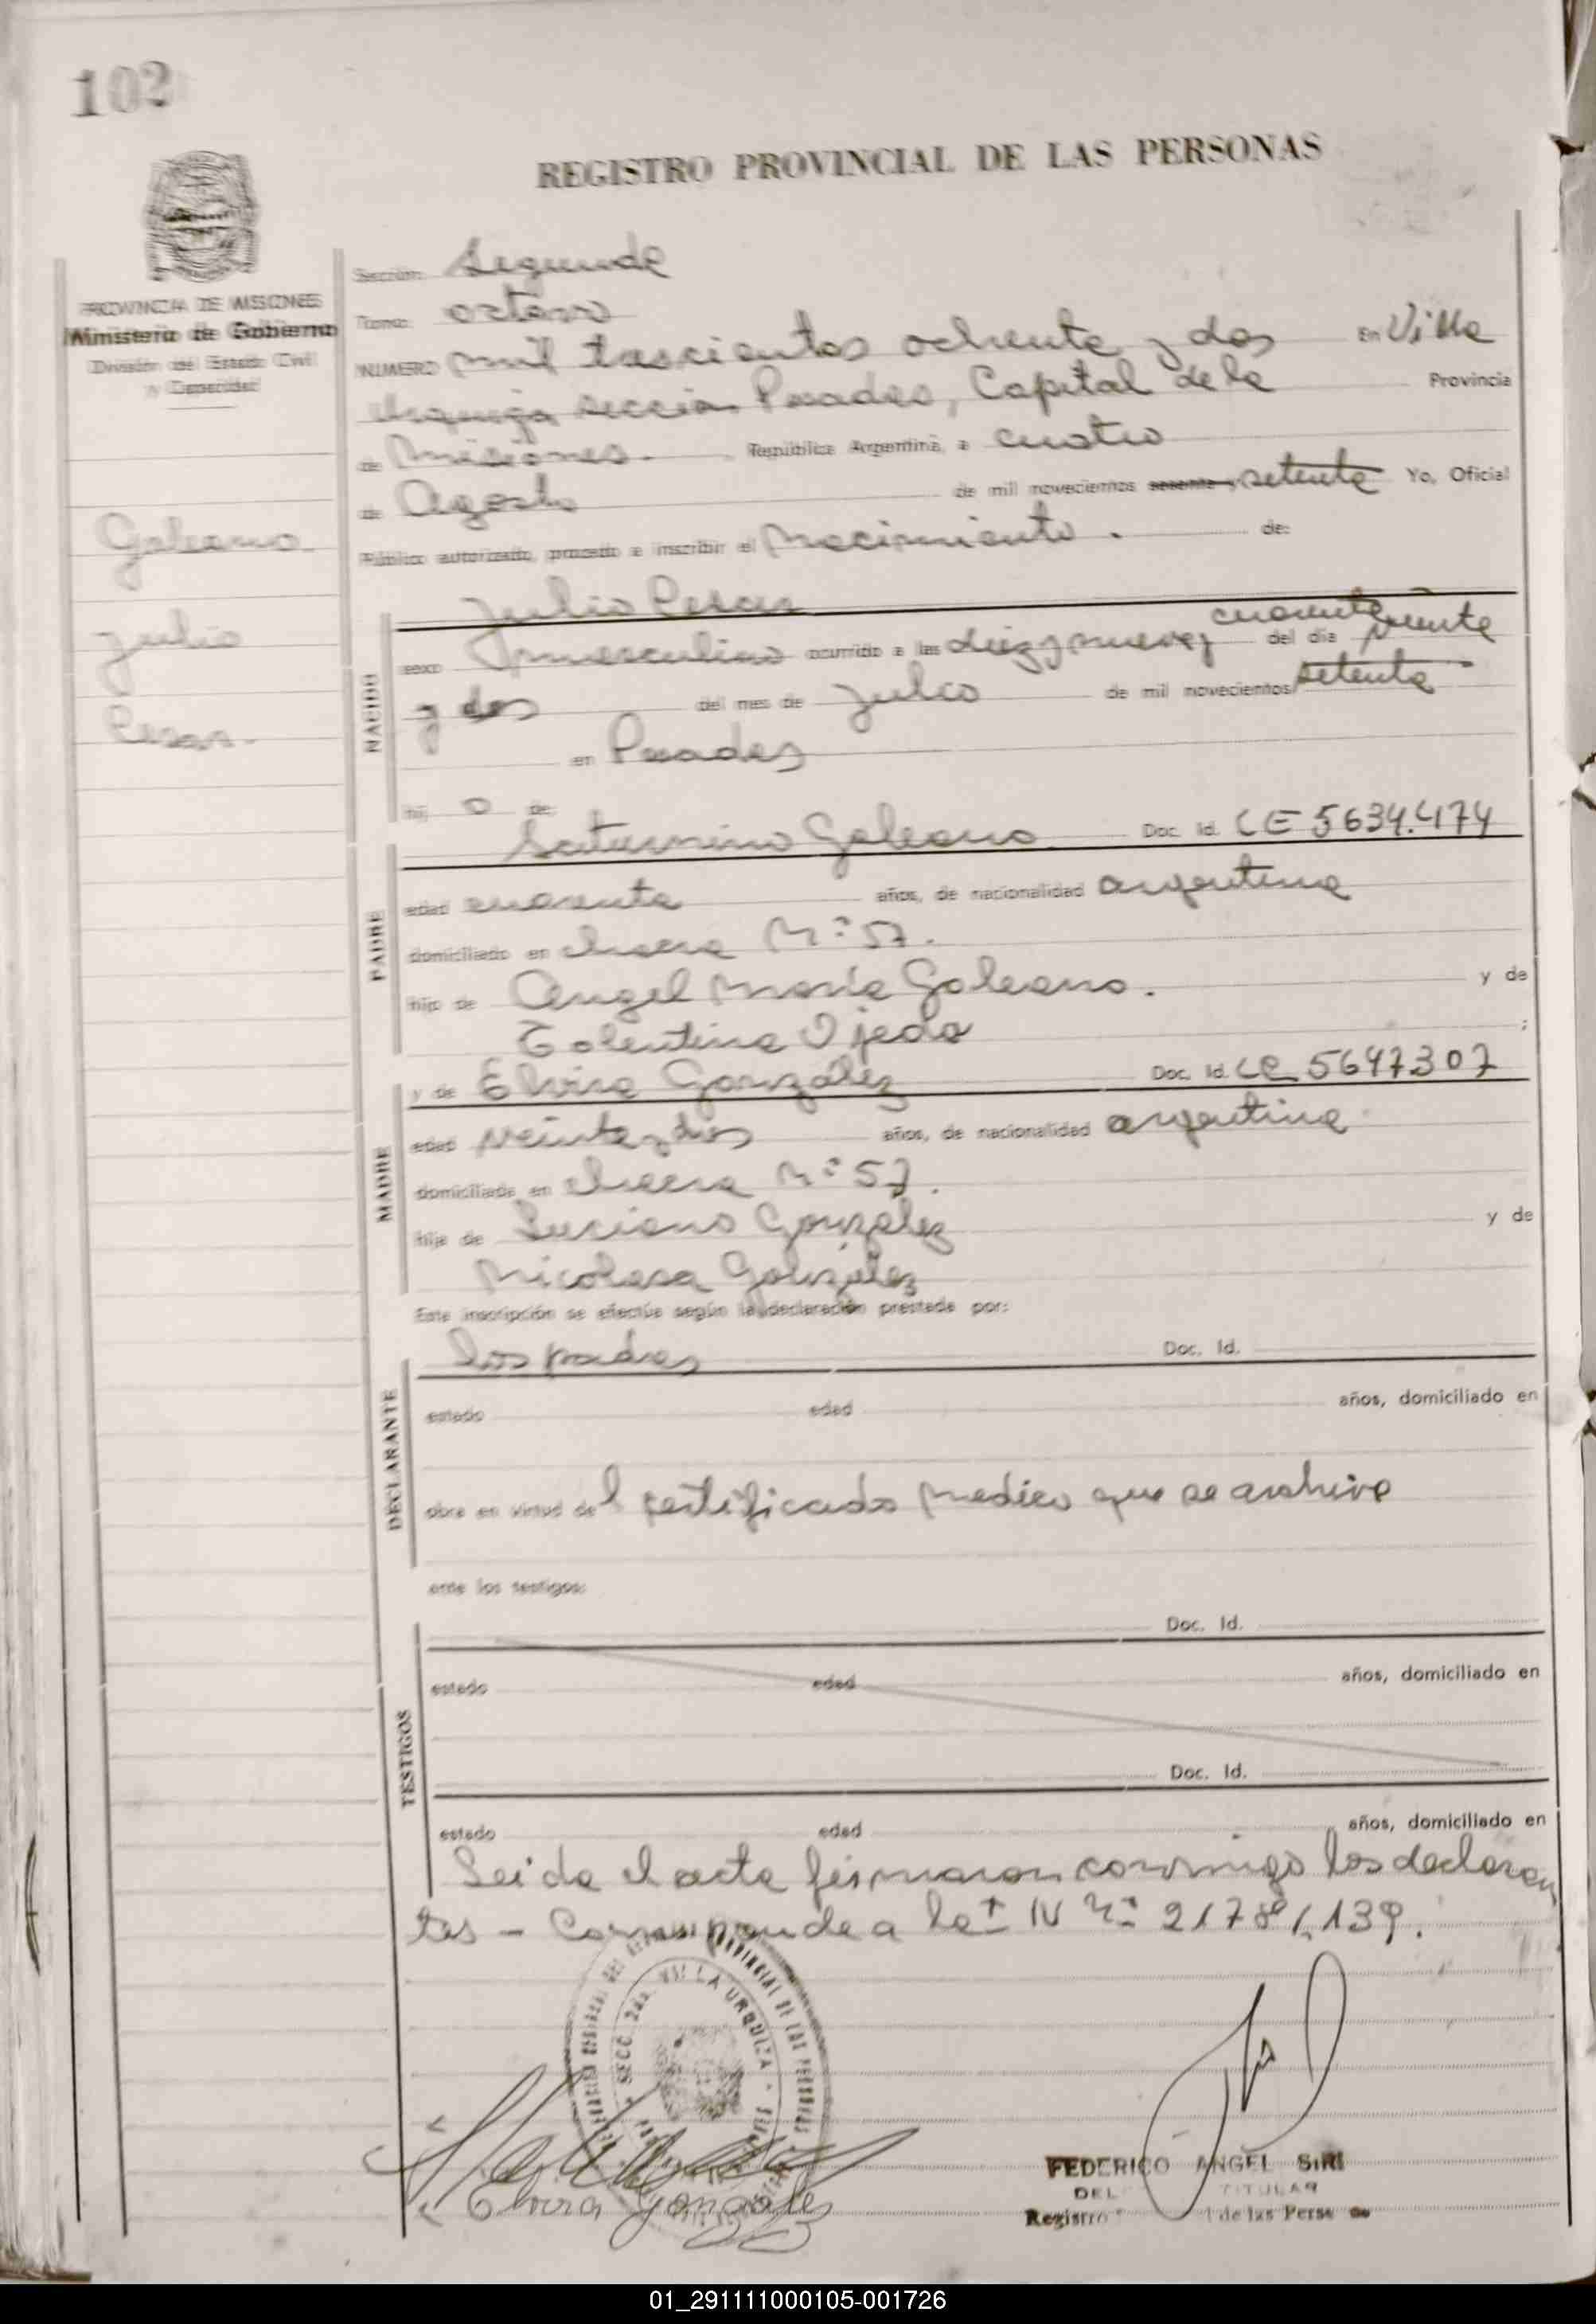 102
REGISTRO PROVINCIAL DE LAS PERSONAS
PROVINCIA DE MISIONES
Ministerio de Gobierno
División del Estado Civil
y Capacidad
Galeano
Julio
Cesar.
Sección: Segunda
Tomo: octavo
NUMERO mil trescientos ochenta y dos En Villa
Urquiza seccion Posadas, Capital de la Provincia
de Misiones. República Argentina, a cuatro
de Agosto de mil novecientos sesenta y setenta Yo, Oficial
Público autorizado, procedo a inscribir el Nacimiento. de:
NACIDO
Julio Cesar
sexo masculino ocurrido a las diez y nueve, cuarenta del día veinte
y dos del mes de Julio de mil novecientos setenta
en Posadas
hij o de:
PADRE
Saturnino Galeano Doc. Id. LE 5634.474
edad cuarenta años, de nacionalidad argentina
domiciliado en chacra Nº 57.
hijo de Angel María Galeano. y de
Tolentina Ojeda ;
MADRE
y de Elvira González Doc. Id. LC 5647307
edad veinte y dos años, de nacionalidad argentina
domiciliada en chacra Nº 57.
hija de Luciano González y de
Nicolasa González
Esta inscripción se efectúa según la declaración prestada por:
DECLARANTE
los padres Doc. Id.
estado edad años, domiciliado en
obra en virtud del certificado medico que se archiva
ante los testigos:
TESTIGOS
Doc. Id.
estado edad años, domiciliado en
Doc. Id.
estado edad años, domiciliado en
Leida el acta firmaron conmigo los declaran
tes - Corresponde a la IV Nº 2178
SECC. 2da. VILLA URQUIZA
PROVINCIAL DE LAS PERSONAS
Elvira Gonzales
FEDERICO ANGEL SIRI
DEL TITULAR
Registro de las Perso
01_291111000105-001726